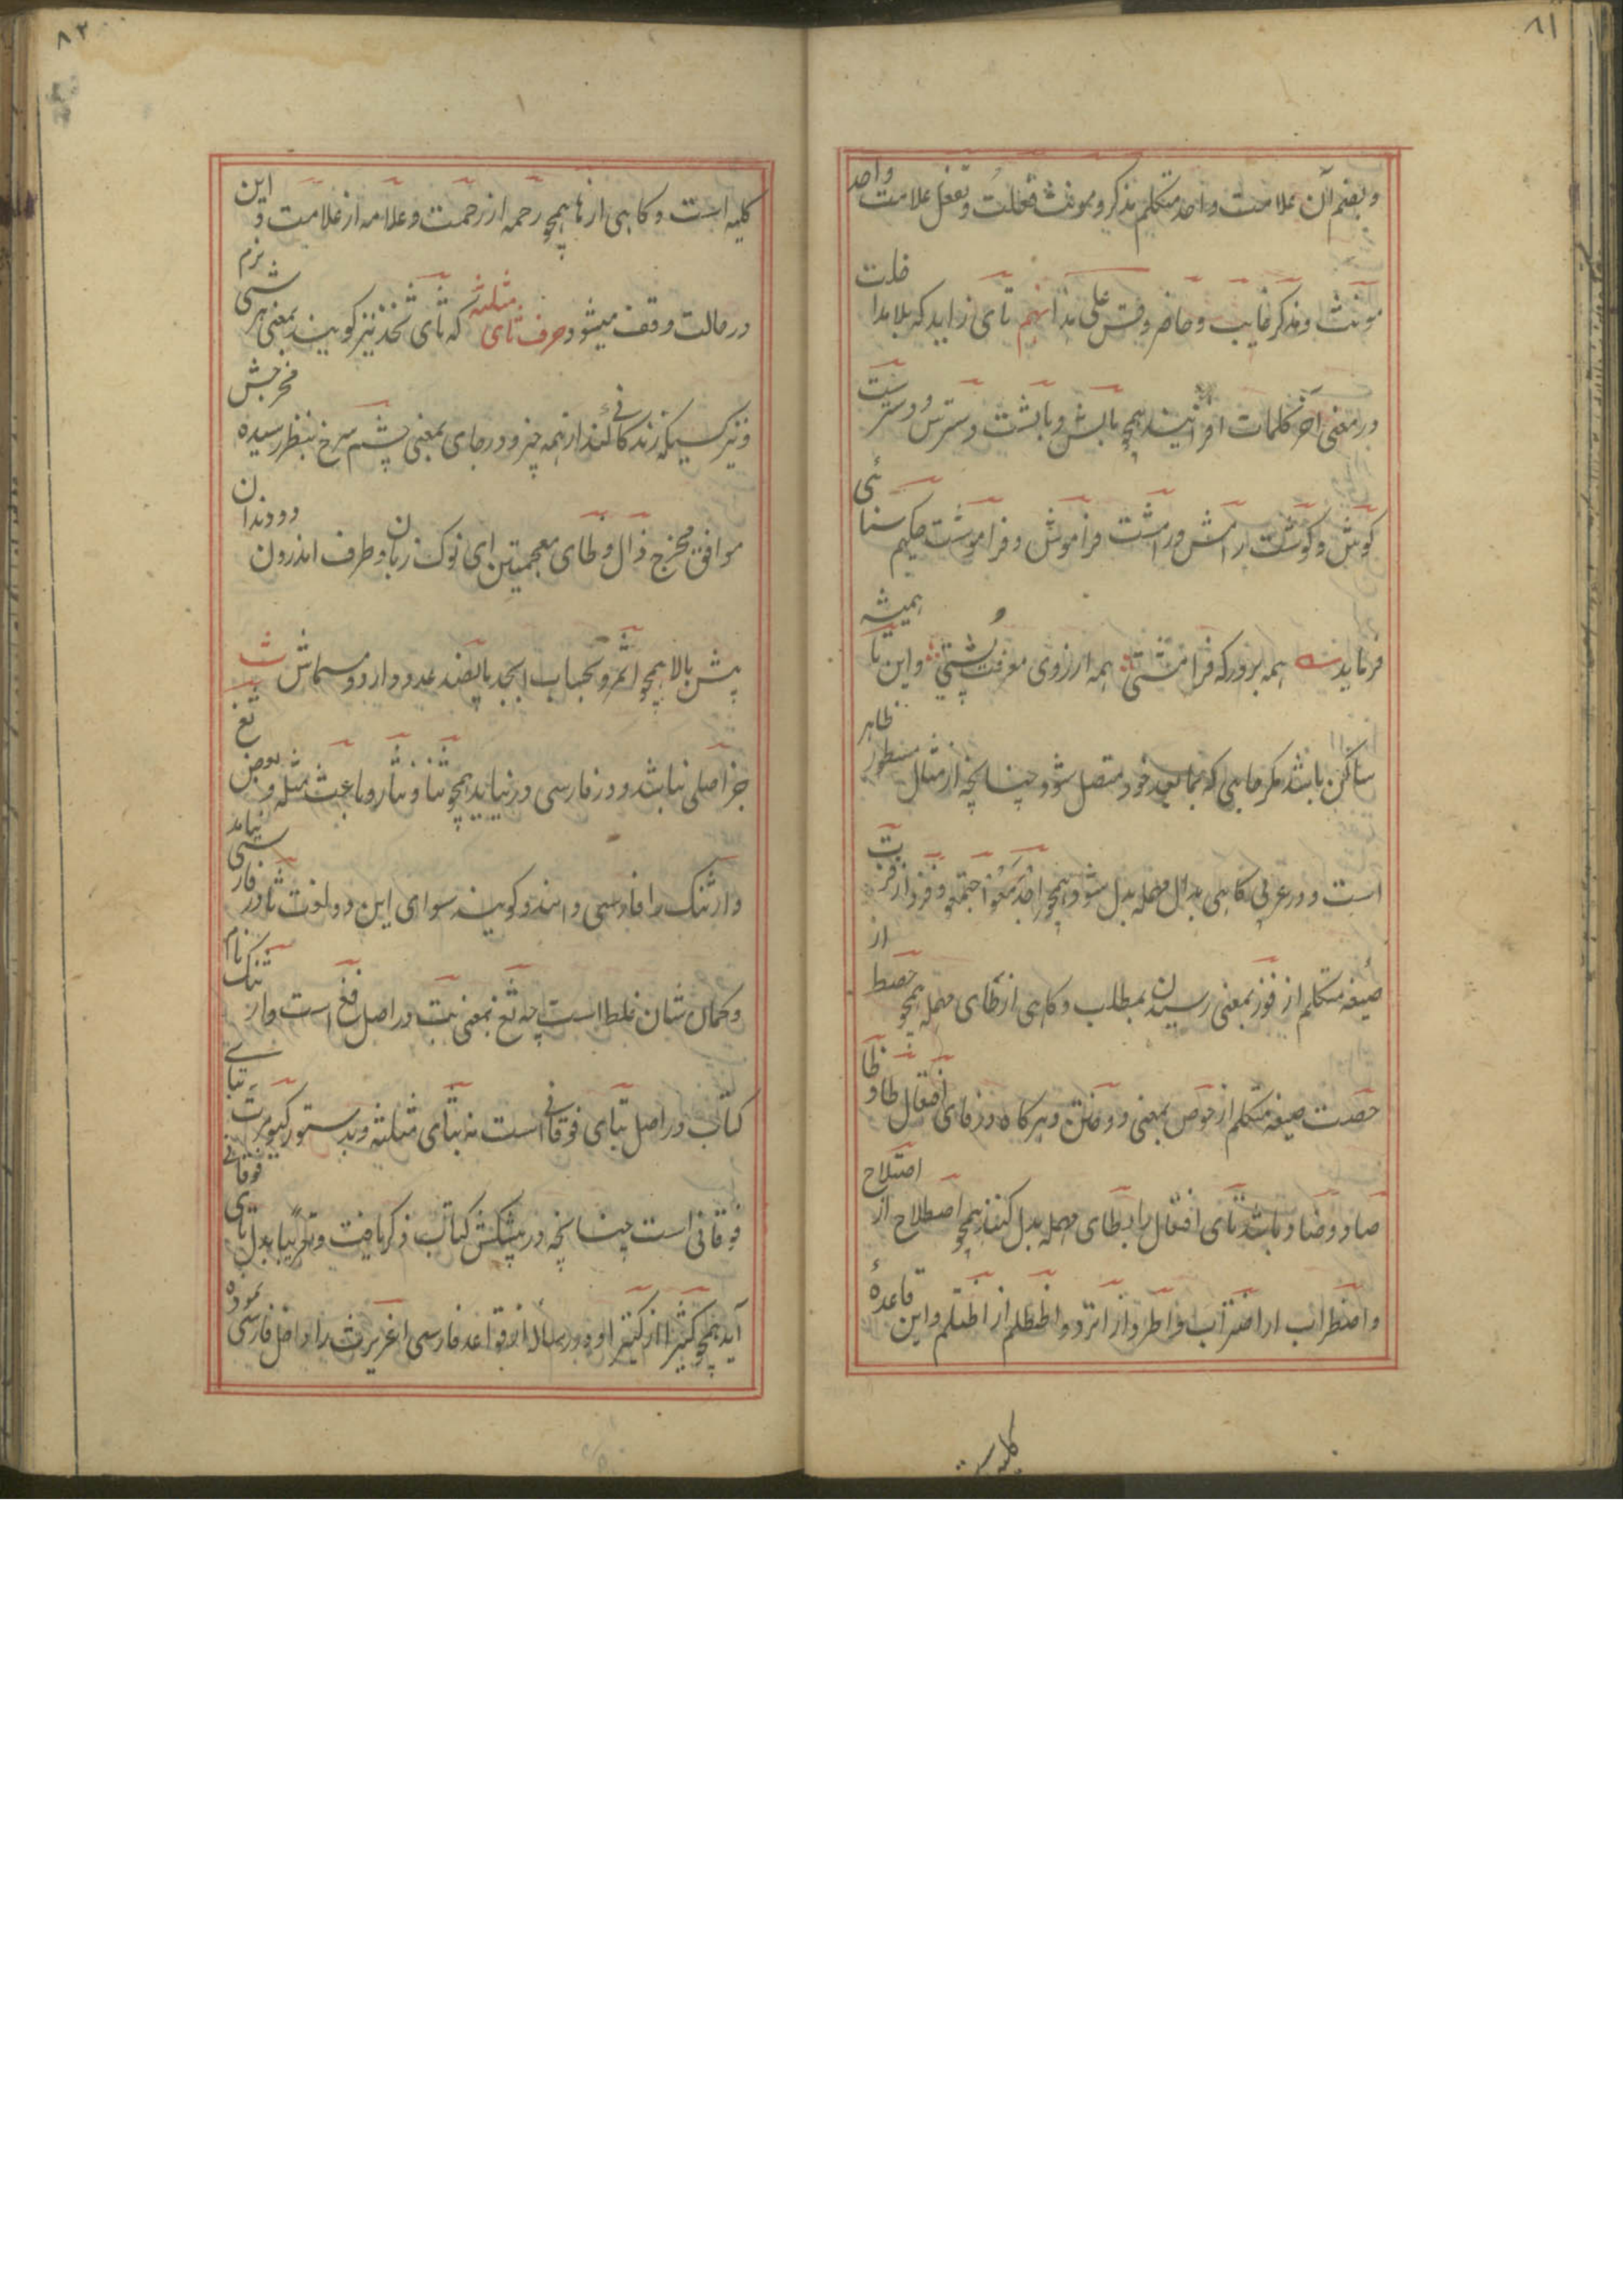 ۸۱
و بضم آن علامت واحد متکلم مذکر و مونث فَعَلتُ و تفعل علامت واحد
مونث و مذکر غایب و حاضر وقس علی هذا نهم تای زاید که بلا مداخلت
در معنی آخر کلمات افزانید همچو بالش و بالشت و سترس و دسترست
کوش و کوشت رامش و رامشت فراموش و فراموشت حکیم سنائی
فرماید همه برورکه فرامشتی همه ارزوی معرفت پشتی و این تا همیشه
ساکن باشد مکر جایی که بمابعد خود متصل شود چنانچه از مثال مسطور ظاهر
است و در عربی کاهی بدال مهمله بدل شود همچو اجدمعوا اجتمعو و فزد از فزت
صیغه متکلم از فوز بمعنی رسیدن بمطلب و کاهی از طای مهمله همچو حصط از
حصت صیغه متکلم از حوص بمعنی دوختن و هرکاه در فای افتعال طا و ظا
صاد و ضاد باشد تای افتعال را بطای مهمله بدل کنند همچو اصطلاح از اصتلاح
و اضطراب از اضتراب و اطرد از اترد و اظطلم از اظتلم و این قاعدهٔ
کلیه است
۸۲
کلیه است و کاهی از ها همچو رحمه از رحمت و علامه از علامت و این
در حالت وقف میشود حرف ثای مثلثه که ثای ثخذ نیز کویند بمعنی هر شی نرم
و نیز کسیکه زندکانی کند از همه چیز و در جای بمعنی چشم سرخ بنظر رسیده مخرجش
موافق مخرج ذال و ظای معجمتین ای نوک زبان و طرف اندرون دو دندان
پیش بالا همچو اثمر و بحساب ابجد پانصد عدد دارد و مسماش ث
جز اصلی نباشد و در فارسی در نیاید همچو ثنا و نثار و باعث مثله و بعض ثغ
و ارثنک را فارسی دانند و کویند سوای این دو لغت ثا در فارسی نیامد
و کمان شان غلط است چه ثغ بمعنی بت در اصل فغ است و ارثنک نام
کتاب در اصل بتای فوقانی است نه بثای مثلثه و بدستور کیومرث بتای
فوقانی است چنانچه در پیشکش کتاب ذکر یافت و تعریبا بدل تای فوقانی
آید همچو کثیرا از کتیرا و در رساله از قواعد فارسی اغریرث را داخل فارسی نموده